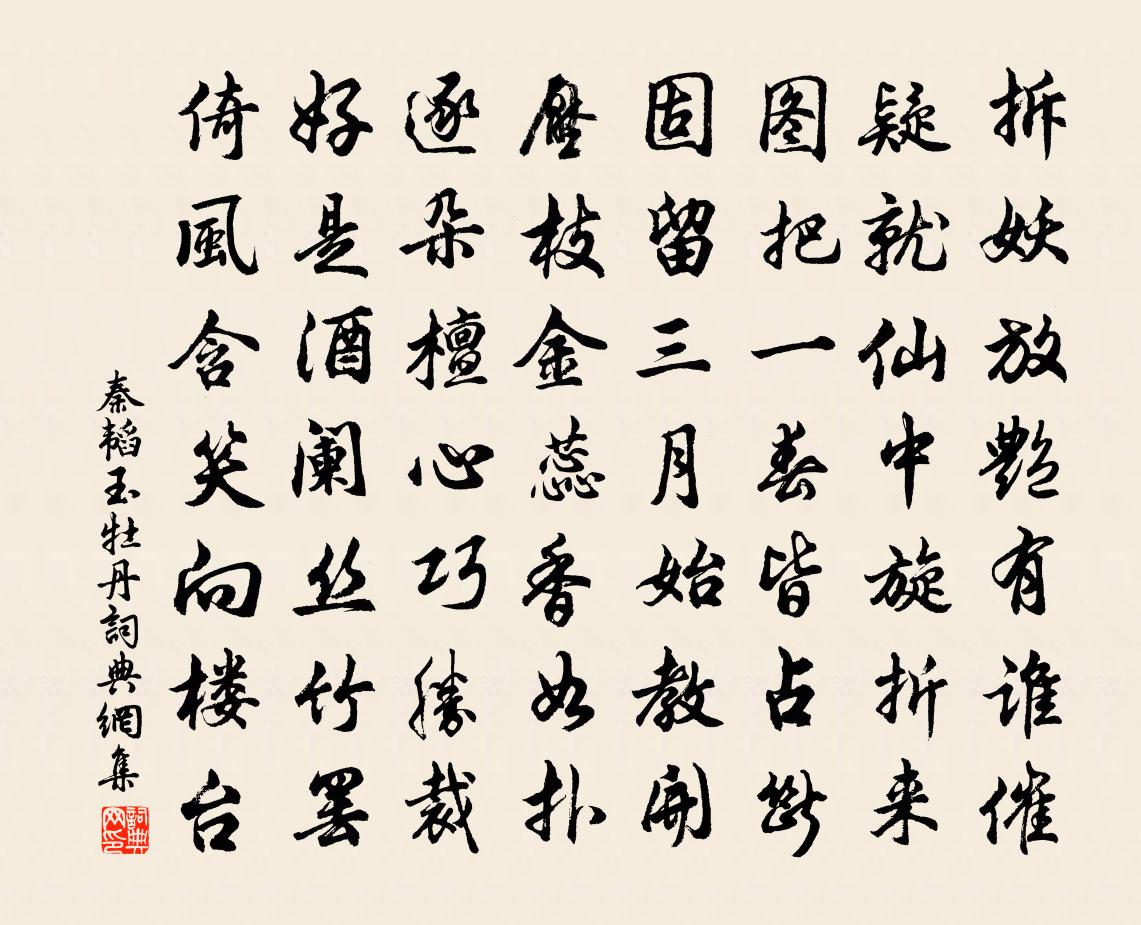 拆妖放艷有谁催
疑就仙中旋折来
图把一春皆占断
固留三月始教開
壓枝金蕊香如扑
逐朵檀心巧勝裁
好是酒阑丝竹罢
倚風含笑向楼台
秦韬玉牡丹詞典網集
詞典网印